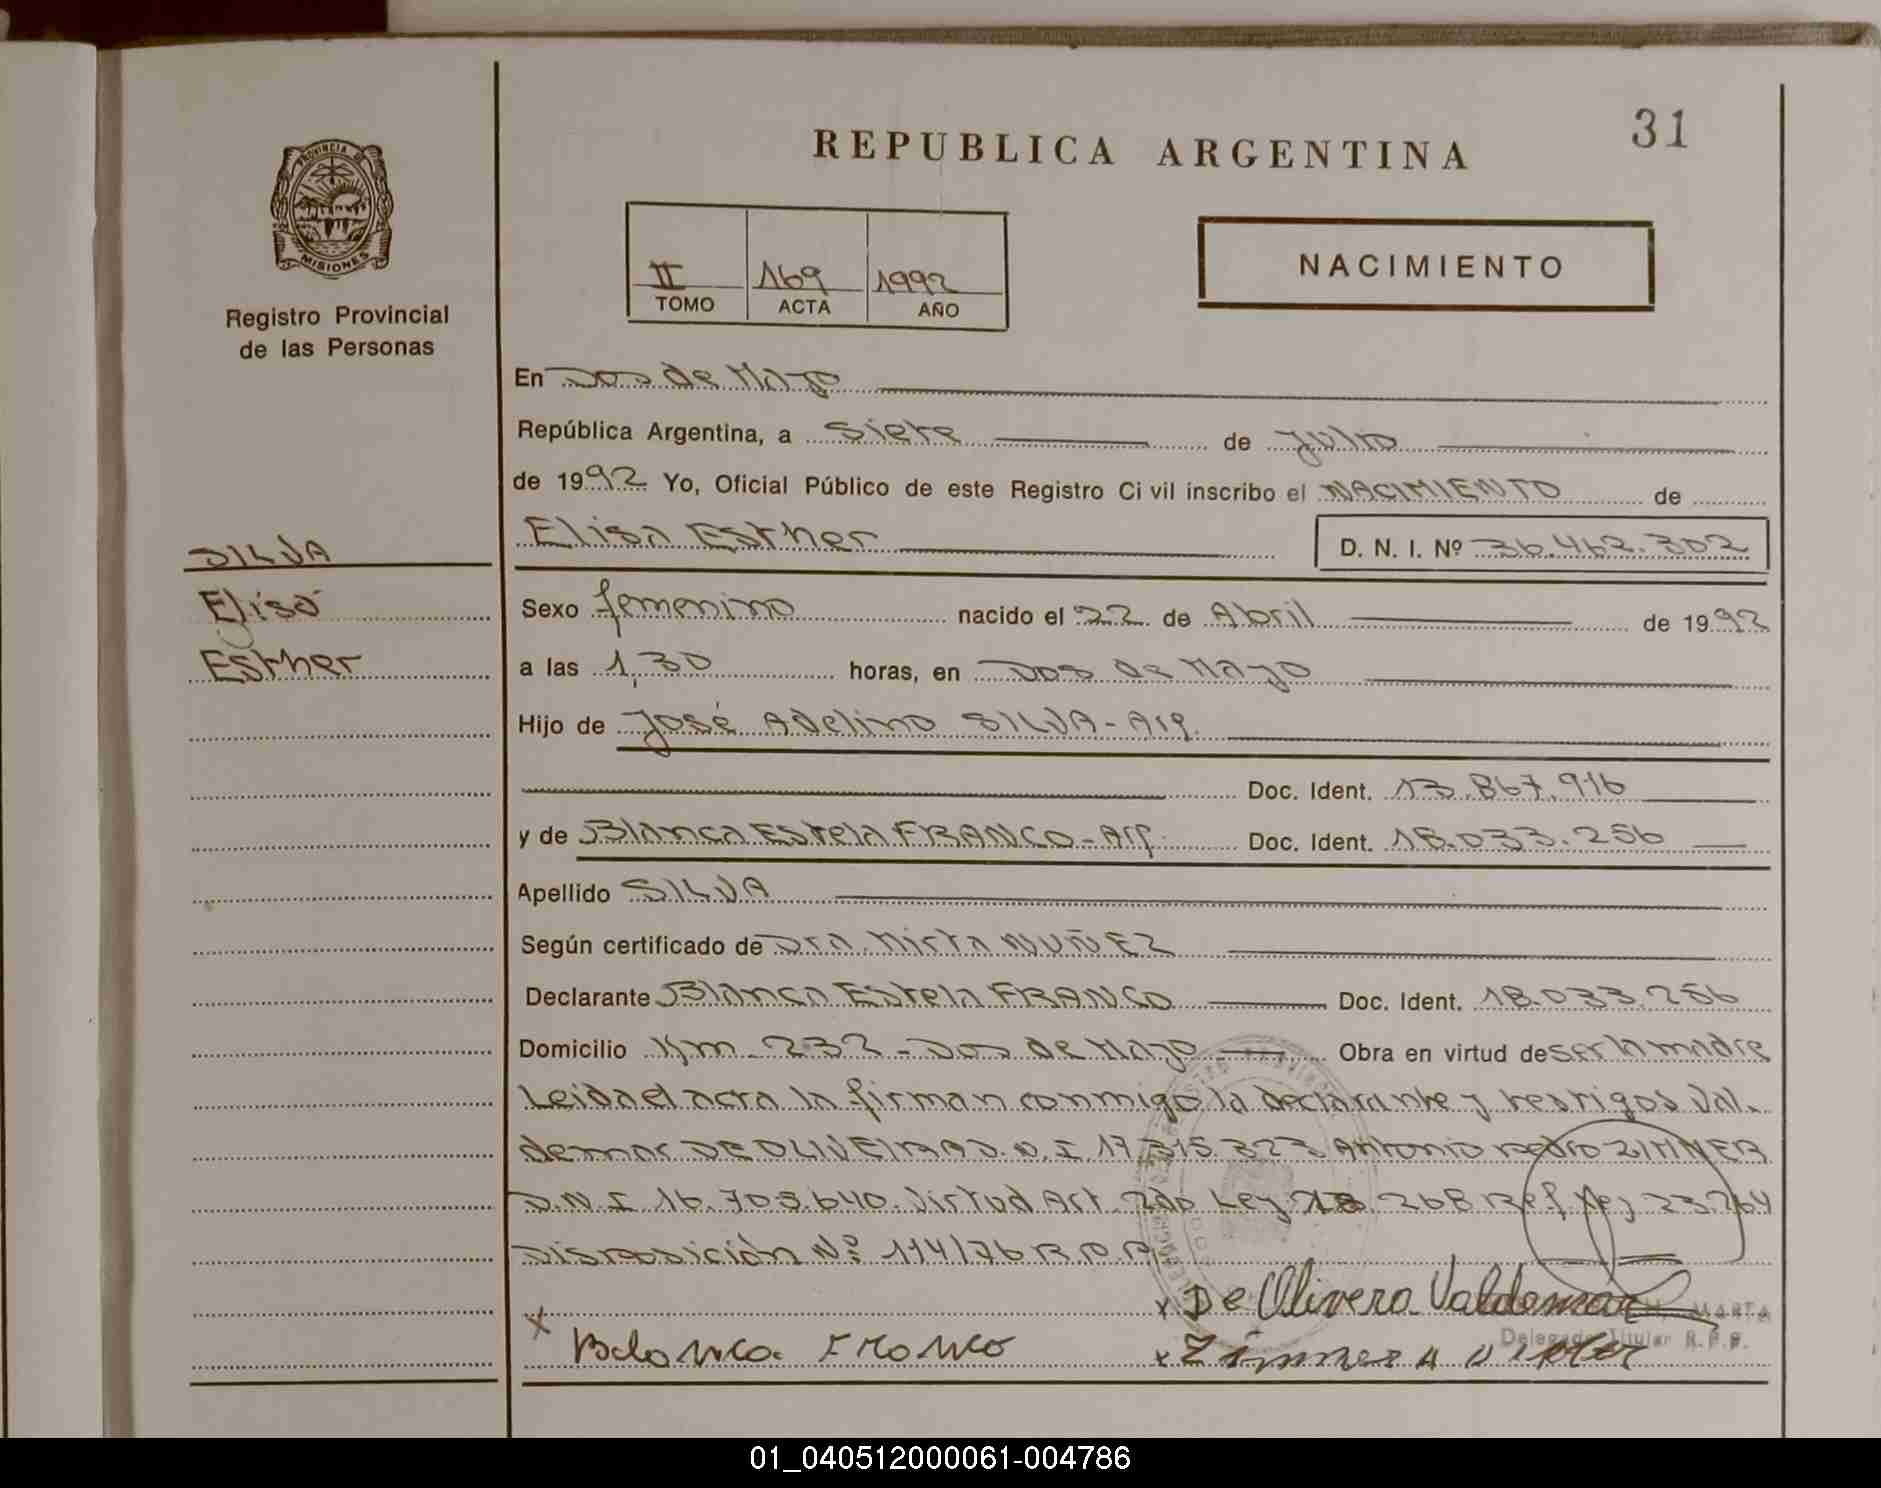 31
REPUBLICA ARGENTINA
PROVINCIA DE
MISIONES
Registro Provincial
de las Personas
II 169 1992
TOMO ACTA AÑO
NACIMIENTO
En Dos de Mayo
República Argentina, a siete de julio
de 1992 Yo, Oficial Público de este Registro Civil inscribo el NACIMIENTO de
SILVA
Elisa
Esther
Elisa Esther D. N. I. Nº 36.462.302
Sexo femenino nacido el 22 de Abril de 1992
a las 1,30 horas, en Dos de Mayo
Hijo de José Adelino SILVA-Arg.
Doc. Ident. 13.867.916
y de Blanca Estela FRANCO-Arg. Doc. Ident. 18.033.256
Apellido SILVA
Según certificado de Dra. Mirta NUÑEZ
Declarante Blanca Estela FRANCO Doc. Ident. 18.033.256
Domicilio Km. 232 - Dos de Mayo Obra en virtud de ser la madre
Leida el acta la firman conmigo la declarante y testigos Val-
demar DE OLIVEIRA D.N.I 17.315.323 Antonio Pedro ZIMMER
D.N.I 16.705.640. Virtud Art. 2do Ley 18.268 Ref. Ley 23.264
Disposición Nº 114/76 R.P.P.
x De Olivera Valdemar
MARTA
Delegado Titular R.P.P.
x Blanca Franco
x Zimmer
01_040512000061-004786